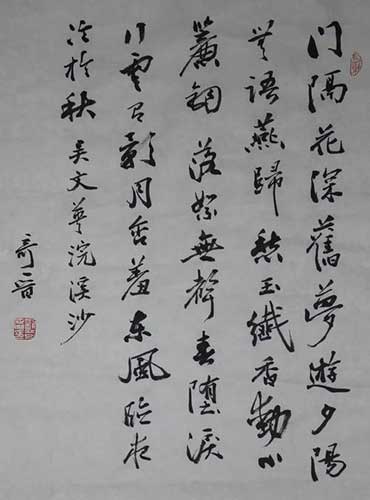 門隔花深舊夢遊夕陽
無語燕歸愁玉纖香動小
簾鉤落絮無聲春墮淚
行雲有影月含羞東風臨夜
冷於秋 吳文英浣溪沙
奇晉